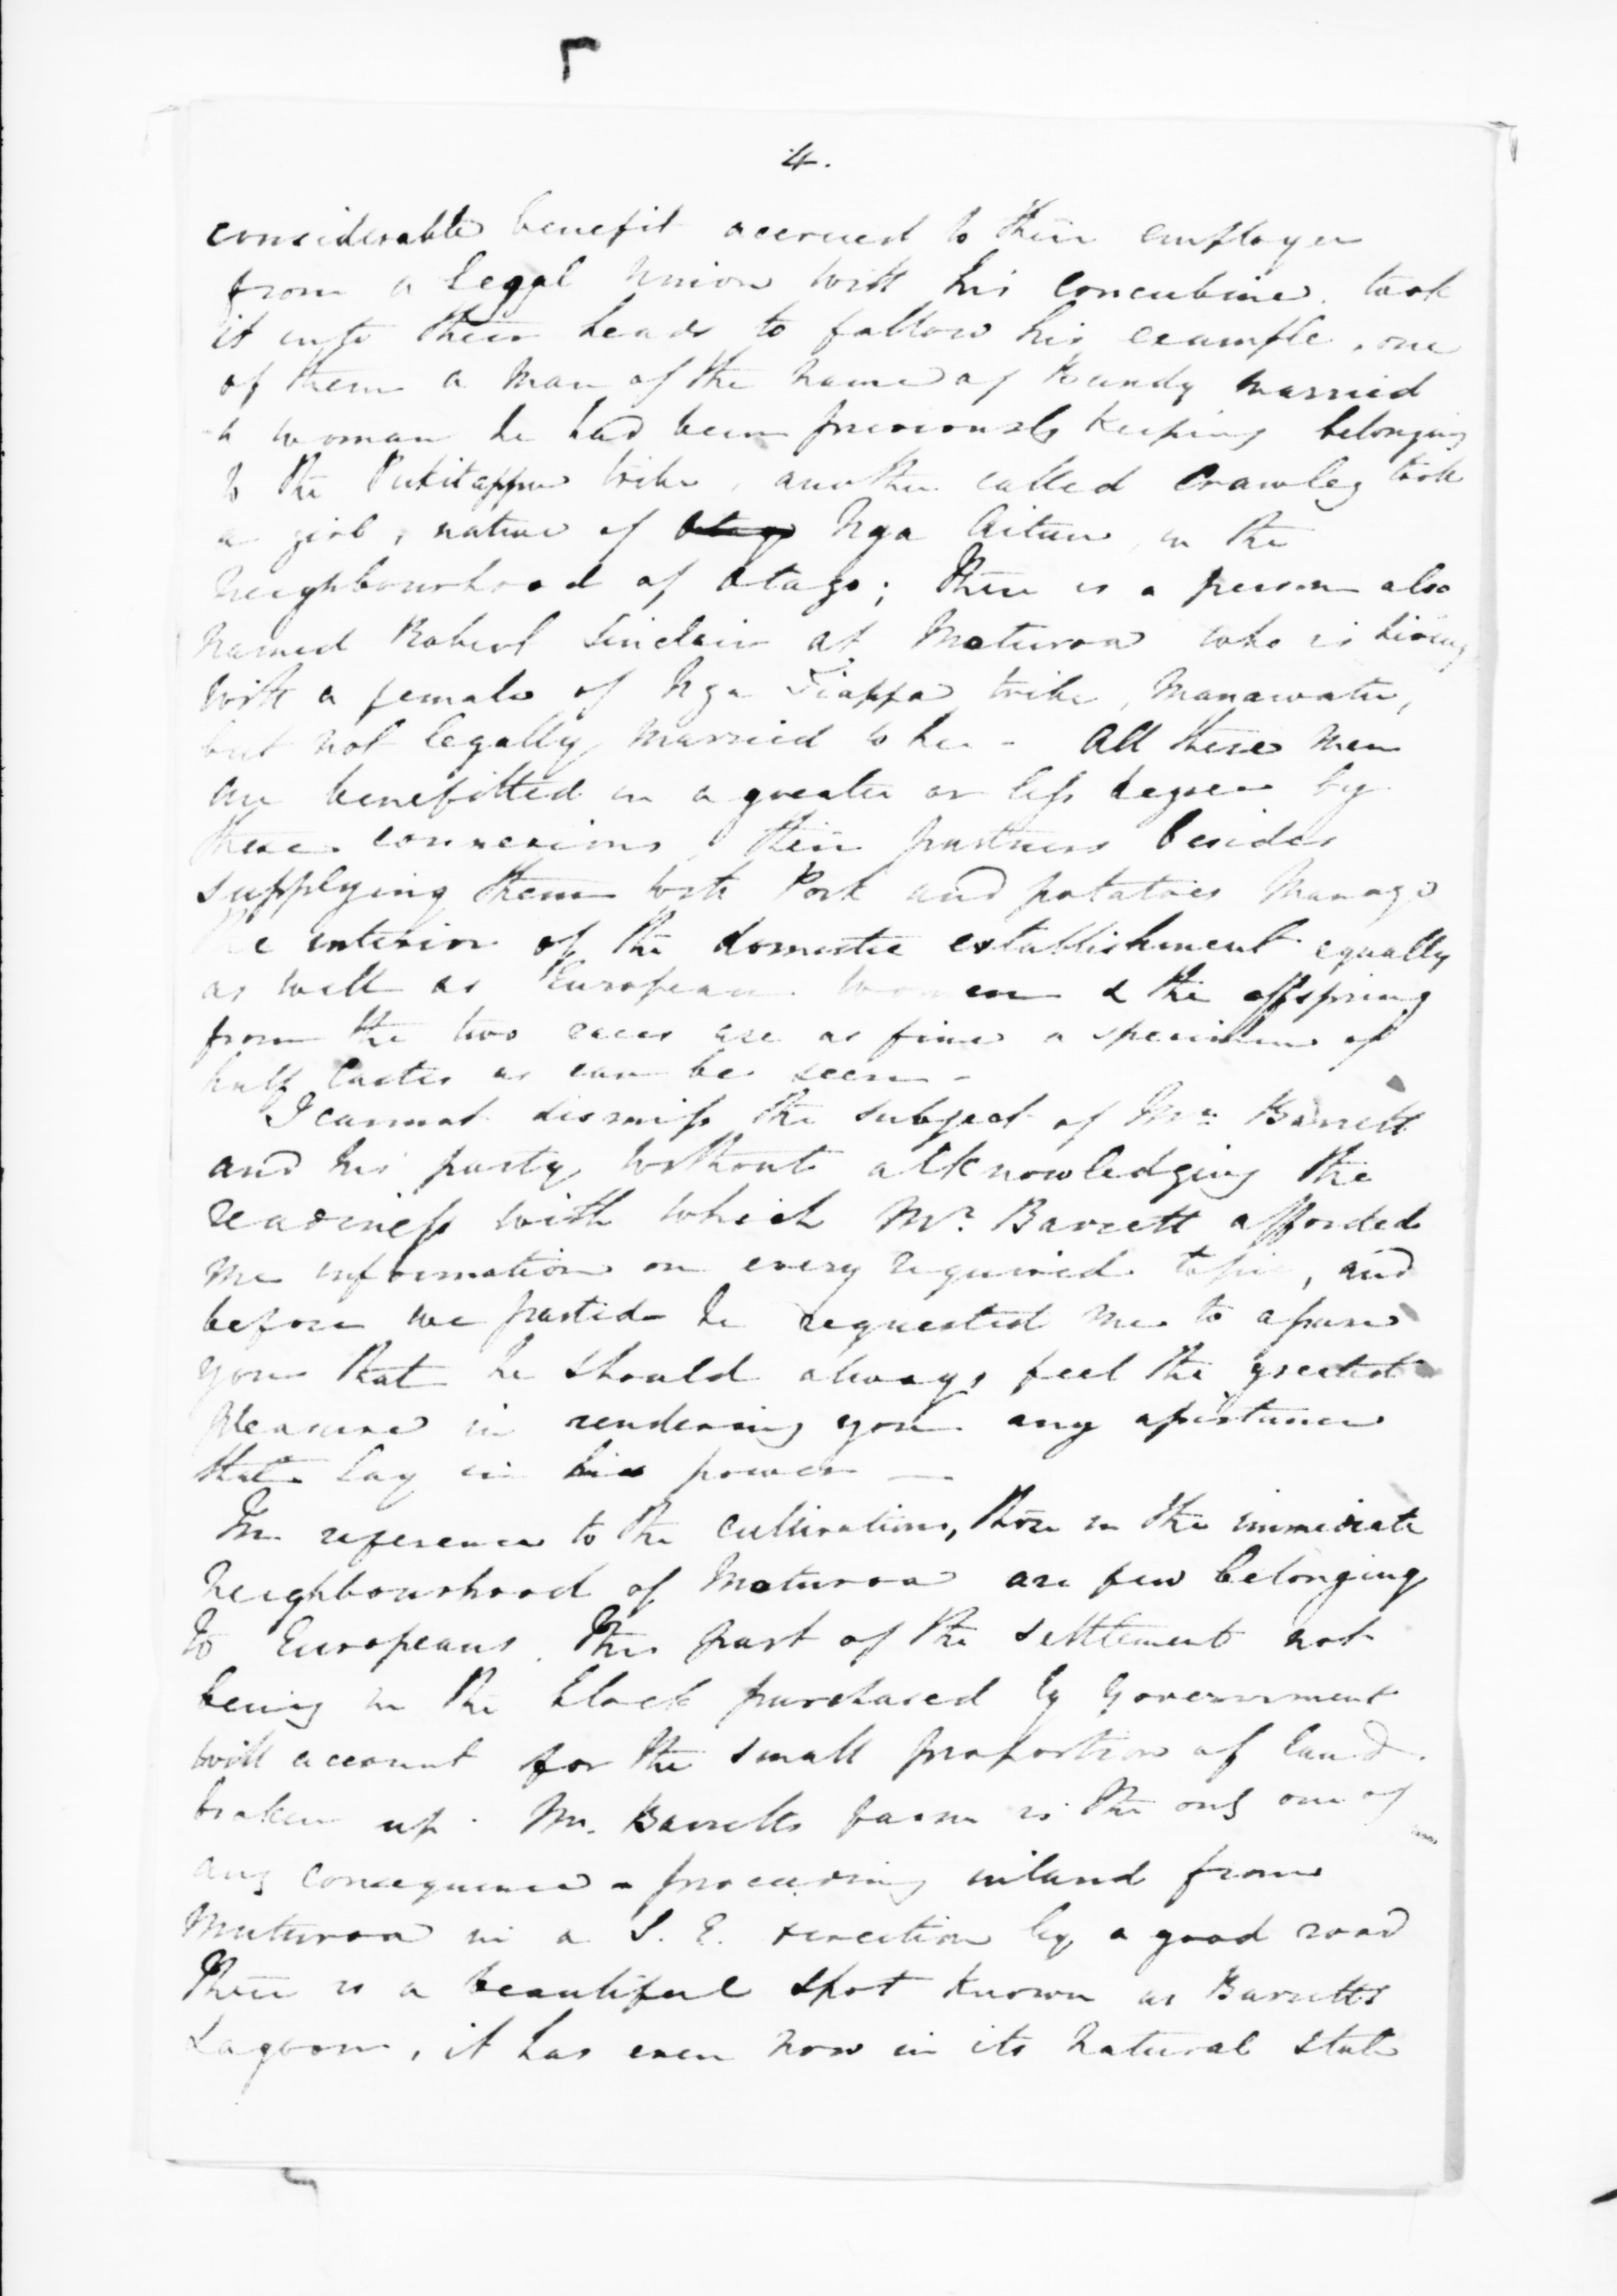 4.
considerable benefit accrued to their employer
from a legal union with his concubine. took
it into their heads to follow his example, one
of them a man of the name of Bundy married
a woman he had been previously keeping belonging
to the Pukitappu tribe, another called Crawley took
a girl, native of Otago Nga Aitua, in the
neighbourhood of Otago; there is a person also
named Robert Sinclair at Moturoa who is living
with a female of Nga Tiappa tribe, Manawatu,
but not legally married to her - All these men
are benefitted in a greater or less degree by
these connexions, their partners besides
supplying them with Pork and potatoes manage
the interior of the domestic establishment equally
as well as European women & the offspring
from the two races are as fine a specimen of
half castes as can be seen -
I cannot dismiss the subject of Mr. Barrett
and his party without acknowledging the
readiness with which Mr. Barrett afforded
me information on every required topic, and
before we parted he requested me to assure
you that he should always feel the greatest
pleasure in rendering you any assistance
that lay in his power —
In reference to the cultivations, those in the immediate
neighbourhood of Moturoa are few belonging
to Europeans. This part of the settlement not
being in the block purchased by Government
will account for the small proportion of land
broken up. Mr. Barretts farm is the only one of
any consequence - proceeding inland from
Muturoa in a S. E. direction by a good road
there is a beautiful spot known as Barretts
Lagoon, it has even now in its natural state